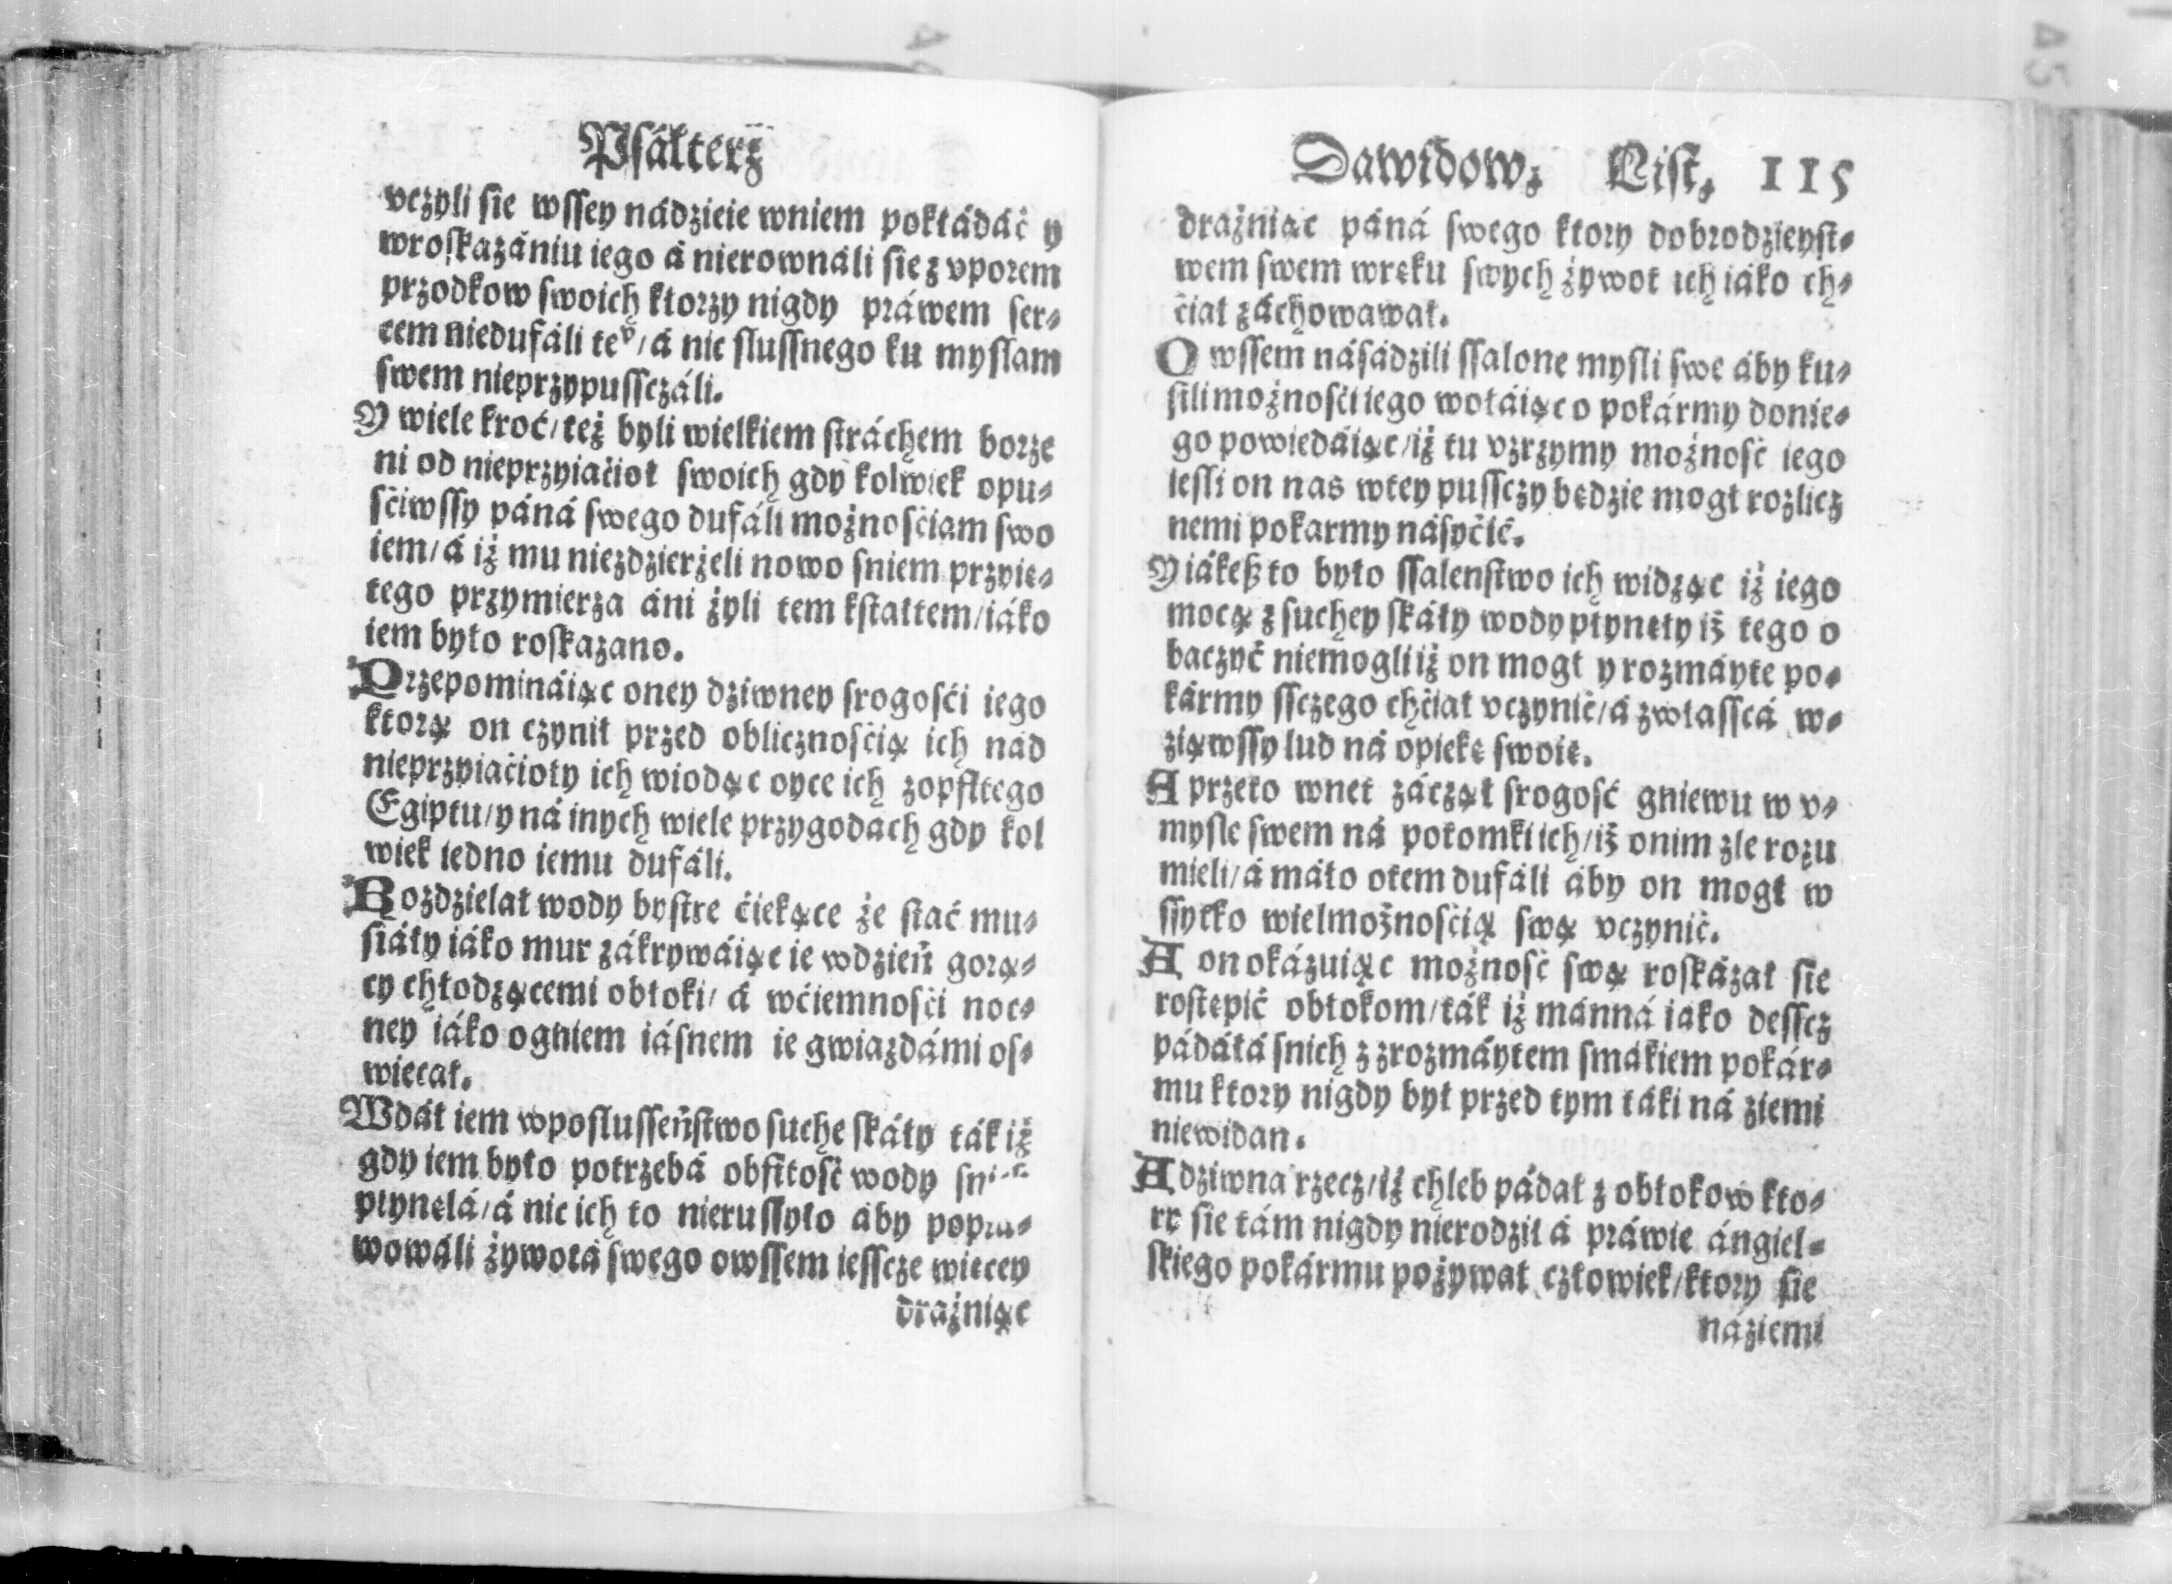 Psálterz
vczyli sie wssey nádzieie wniem pokłádáć y
wroskazániu iego á nierownáli sie z vporem
przodkow swoich ktorzy nigdy práwem ser⸗
cem niedufáli teᵛ/á nic slussnego ku myslam
swem nieprzypussczáli.
Y wiele kroć/też byli wielkiem stráchem borze
ni od nieprzyiaćioł swoich gdy kolwiek opu⸗
śćiwssy páná swego dufáli możnośćiam swo
iem/á iż mu niezdzierżeli nowo sniem przyię⸗
tego przymierza áni żyli tem kstałtem/iáko
iem było roskazano.
Przepomináiąc oney dziwney srogośći iego
ktorą on czynił przed oblicznośćią ich nád
nieprzyiaćioły ich wiodąc oyce ich zopfitego
Egiptu/y ná inych wiele przygodach gdy kol
wiek iedno iemu dufáli.
Rozdzielał wody bystre ćiekące że stáć mu⸗
siáły iáko mur zákrywáiąc ie wdzień gorą⸗
cy chłodzącemi obłoki/ á wćiemnośći noc⸗
ney iáko ogniem iásnem ie gwiazdámi os⸗
wiecał.
Wdáł iem wposlusseństwo suche skáły ták iż
gdy iem było potrzebá obfitość wody
płynęlá/á nic ich to nierussyło áby popra⸗
wowáli żywotá swego owssem iesscze więcey
drażniąc
Dawidow. List. 115
drażniąc páná swego ktory dobrodzieyst⸗
wem swem wręku swych żywot ich iáko ch⸗
ćiał záchowawał.
O wssem násádzili ssalone mysli swe áby ku⸗
sili możnośći iego wołáiąc o pokármy donie⸗
go powiedáiąc/iż tu vzrzymy możność iego
iesli on nas wtey pussczy będzie mogł rozlicz
nemi pokarmy násyćić.
Y iákeß to było ssalenstwo ich widząc iż iego
mocą z suchey skáły wody płynęły iż tego o
baczyć niemogli iż on mogł y rozmáyte po⸗
kármy ssczego chćiał vczynić/á zwłasscá w⸗
ziąwssy lud ná opiekę swoię.
A przeto wnet záczął srogość gniewu w v⸗
mysle swem ná potomki ich/iż onim zle rozu
mieli/á máło otem dufáli áby on mogł w
ssytko wielmożnośćią swą vczynić.
A on okázuiąc możność swą roskázał sie
rostępić obłokom/ták iż mánná iáko desscz
pádáłá snich z zrozmáytem smákiem pokár⸗
mu ktory nigdy był przed tym táki ná ziemi
niewidan.
A dziwna rzecz/iż chleb pádał z obłokow kto⸗
ry sie tám nigdy nierodził á práwie ángiel⸗
skiego pokármu pożywał człowiek/ktory sie
naziemi